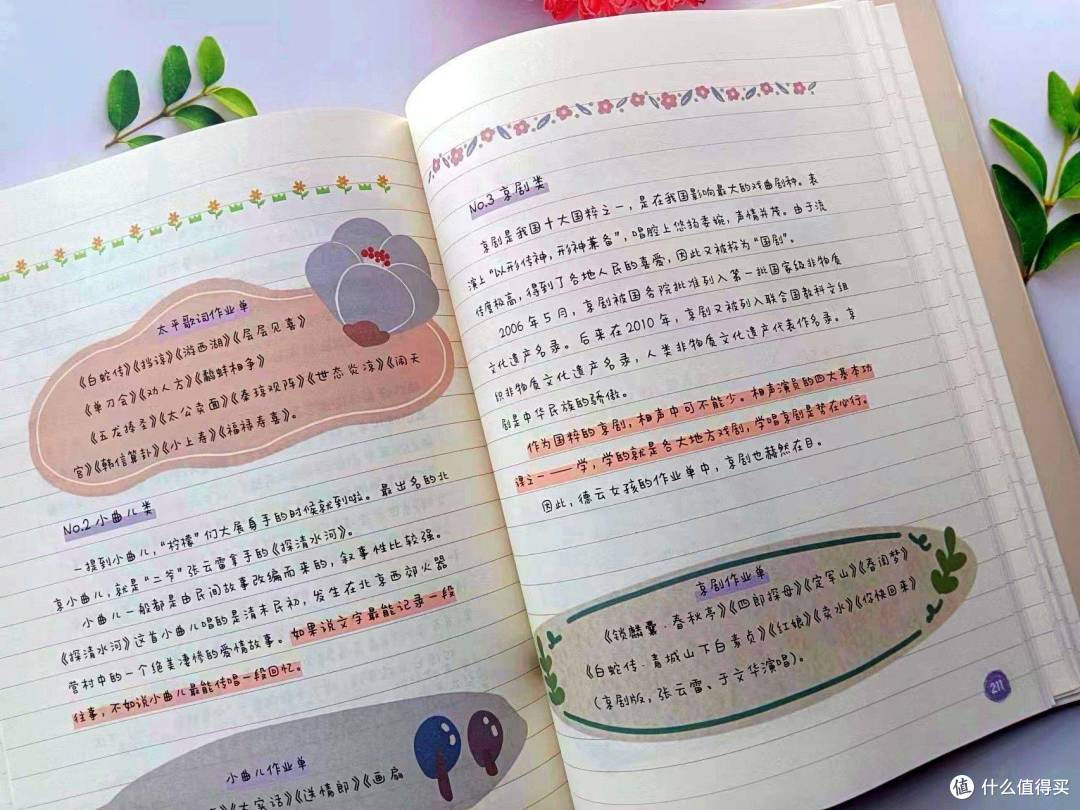 太平歌词作业单
《白蛇传》《挡谅》《游西湖》《层层见喜》
《单刀会》《劝人方》《鹬蚌相争》
《五龙捧圣》《太公卖面》《秦琼观阵》《世态炎凉》《闹天
宫》《韩信算卦》《小上寿》《福禄寿喜》。
No.2 小曲儿类
一提到小曲儿，“柠檬”们大展身手的时候就到啦。最出名的北
京小曲儿，就是“二爷”张云雷拿手的《探清水河》。
小曲儿一般都是由民间故事改编而来的，叙事性比较强。
《探清水河》这首小曲儿唱的是清末民初，发生在北京西郊火器
营村中的一个绝美凄惨的爱情故事。如果说文字最能记录一段
往事，不如说小曲儿最能传唱一段回忆。
小曲儿作业单
《大实话》《送情郎》《画扇
No.3 京剧类
京剧是我国十大国粹之一，是在我国影响最大的戏曲剧种。表
演上“以形传神，形神兼备”，唱腔上悠扬委婉，声情并茂。由于流
传度极高，得到了各地人民的喜爱，因此又被称为“国剧”。
2006年5月，京剧被国务院批准列入第一批国家级非物质
文化遗产名录。后来在2010年，京剧又被列入联合国教科文组
织非物质文化遗产名录，人类非物质文化遗产代表作名录。京
剧是中华民族的骄傲。
作为国粹的京剧，相声中可不能少。相声演员的四大基本功
课之一——学，学的就是各大地方戏剧，学唱京剧是势在必行。
因此，德云女孩的作业单中，京剧也赫然在目。
京剧作业单
《锁麟囊·春秋亭》《四郎探母》《定军山》《春闺梦》
《白蛇传·青城山下白素贞》《红娘》《卖水》《你快回来》
（京剧版，张云雷、于文华演唱）。
211
值 什么值得买